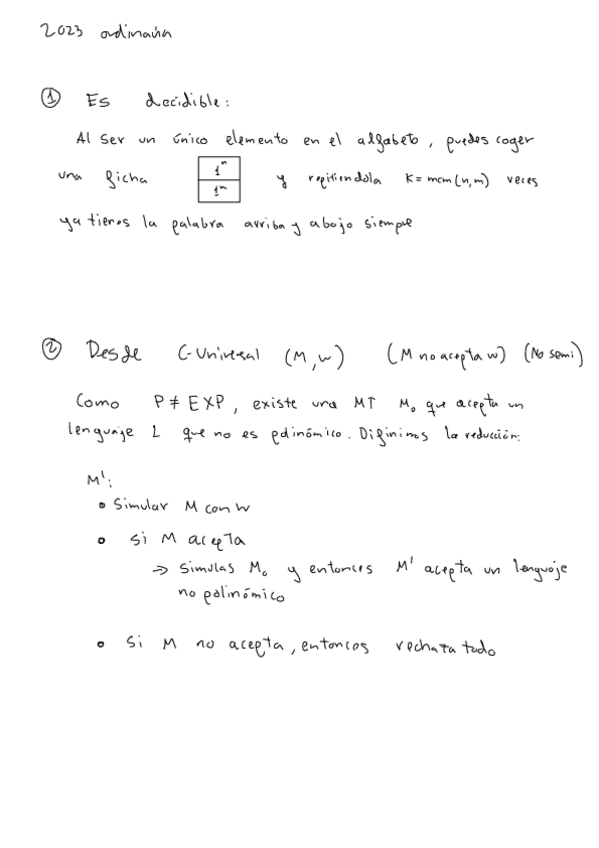 2023 ordinaria
① Es decidible:
Al ser un único elemento en el alfabeto, puedes coger
una ficha 1ⁿ / 1ᵐ y repitiendola K = mcm(n,m) veces
ya tienes la palabra arriba y abajo siempre
② Desde C-Universal (M,w) (M no acepta w) (No semi)
Como P ≠ EXP, existe una MT M₀ que acepta un
lenguaje L que no es polinómico. Definimos la reducción:
M':
• Simular M con w
• Si M acepta
→ Simulas M₀ y entonces M' acepta un lenguaje
no polinómico
• Si M no acepta, entonces rechaza todo